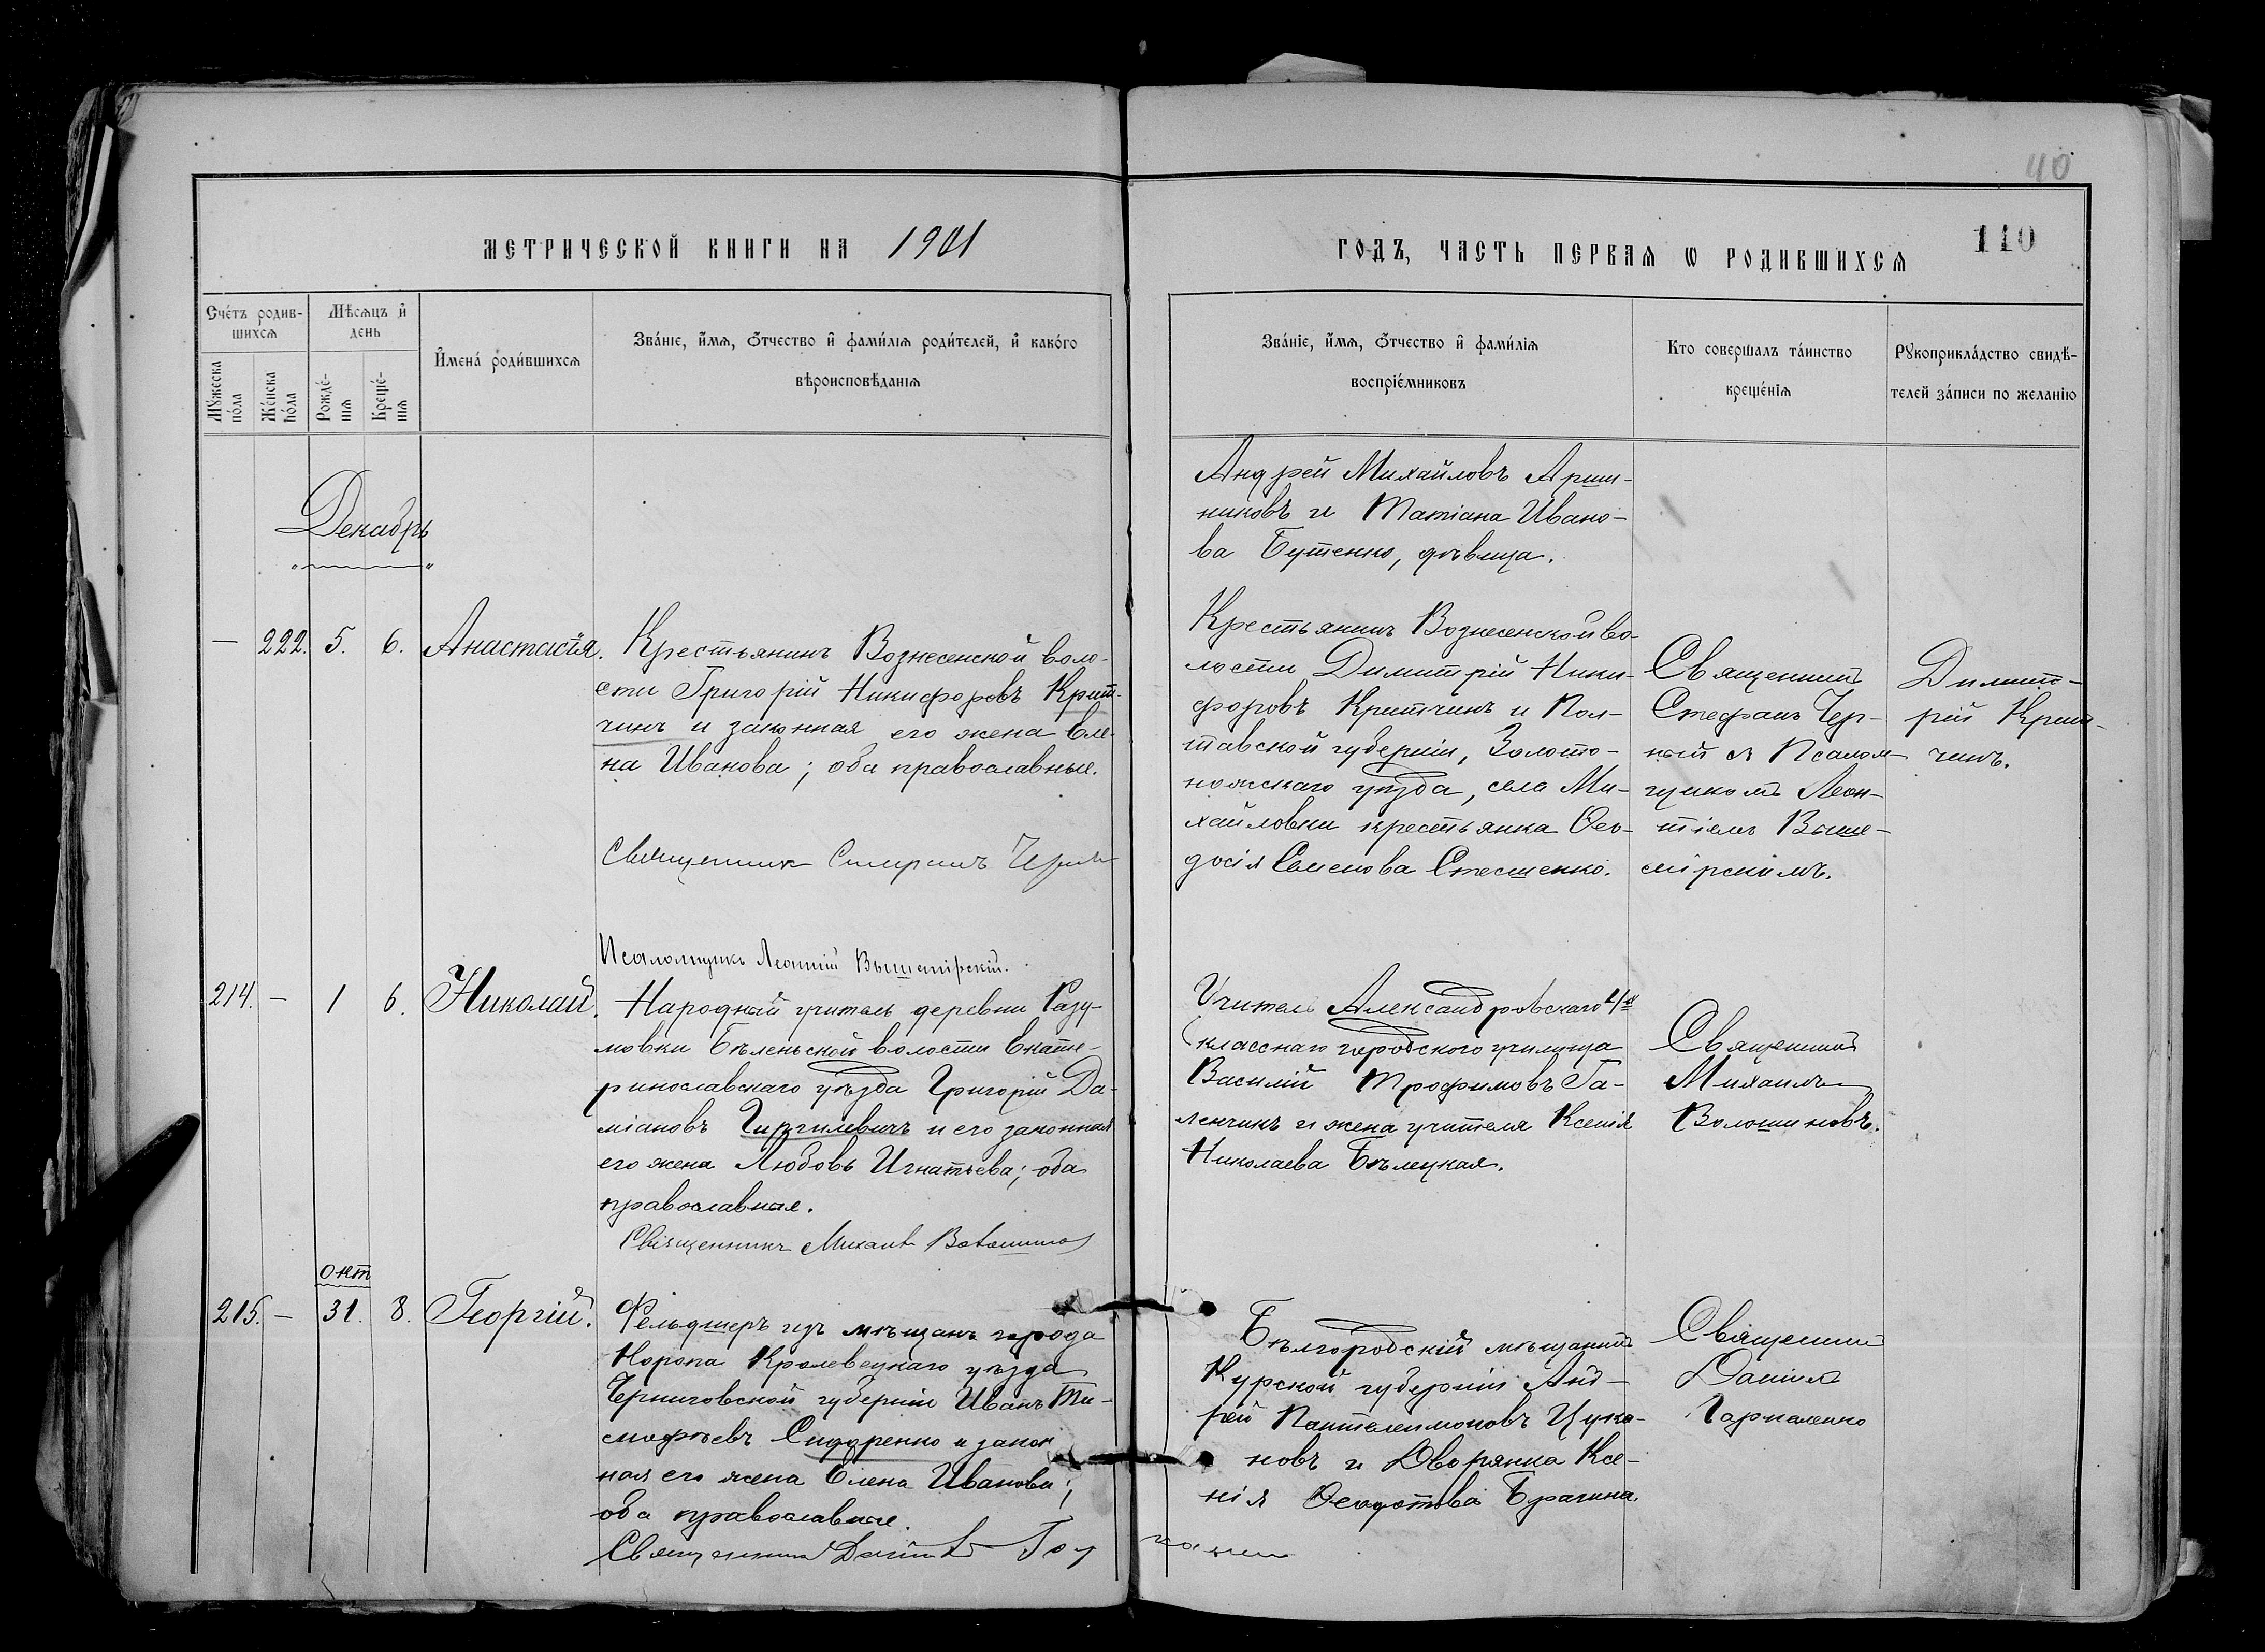 40
МЕТРИЧЕСКОЙ КНИГИ НА 1901
ГОДЪ, ЧАСТЬ ПЕРВАЯ Ѡ РОДИВШИХСЯ
110
Счетъ родив-
шихся
Мѣсяцъ и
день
Мужеска
пола
Женска
пола
Рожде-
нія
Креще-
нія
Имена родившихся
Званіе, имя, отчество и фамилія родителей, и какого
вѣроисповѣданія
Званіе, имя, отчество и фамилія
воспріемниковъ
Кто совершалъ таинство
крещенія
Рукоприкладство свидѣ-
телей записи по желанію
Декабрь
Андрей Михайловъ Арши-
никовъ и Татіана Ивано-
ва Бутенко, дѣвица.
— 222. 5. 6. Анастасія.
Крестьянинъ Вознесенской воло-
сти Григорій Никифоровъ Крит-
чинъ и законная его жена Еле-
на Иванова; оба православные.
Священникъ Стефанъ Черный
Псаломщикъ Леонтій Вышемірскій.
Крестьянинъ Вознесенской во-
лости Димитрій Ники-
форовъ Критчинъ и Пол-
тавской губерніи, Золото-
ножскаго уѣзда, села Ми-
хайловки крестьянка Ѳео-
досія Семенова Стешенко.
Священникъ
Стефанъ Чер-
ный съ Псалом-
щикомъ Леон-
тіемъ Выше-
мірскимъ.
Димит-
рій Крит-
чинъ.
214. — 1 6. Николай.
Народный учитель деревни Разу-
мовки Бѣленьской волости Екате-
ринославскаго уѣзда Григорій Да-
міановъ Гиргилевичъ и его законная
его жена Любовь Игнатьева; оба
православные.
Священникъ Михаилъ Волошиновъ
Учитель Александровскаго 4/х
класснаго городского училища
Василій Трофимовъ Га-
ленчикъ и жена учителя Ксенія
Николаева Бѣлецкая.
Священникъ
Михаилъ
Волошиновъ.
окт
215. — 31. 8. Георгій.
Фельдшеръ изъ мѣщанъ города
Коропа Кролевецкаго уѣзда
Черниговской губерніи Иванъ Ти-
моѳеевъ Сидоренко и закон
ная его жена Елена Иванова;
оба православные.
Священникъ Даніилъ
Бѣлгородскій мѣщанинъ
Курской губерніи Анд-
рей Пантелеимоновъ Цука-
новъ и Дворянка Ксе-
нія Ѳеодотова Брагина.
Священникъ
Даніилъ